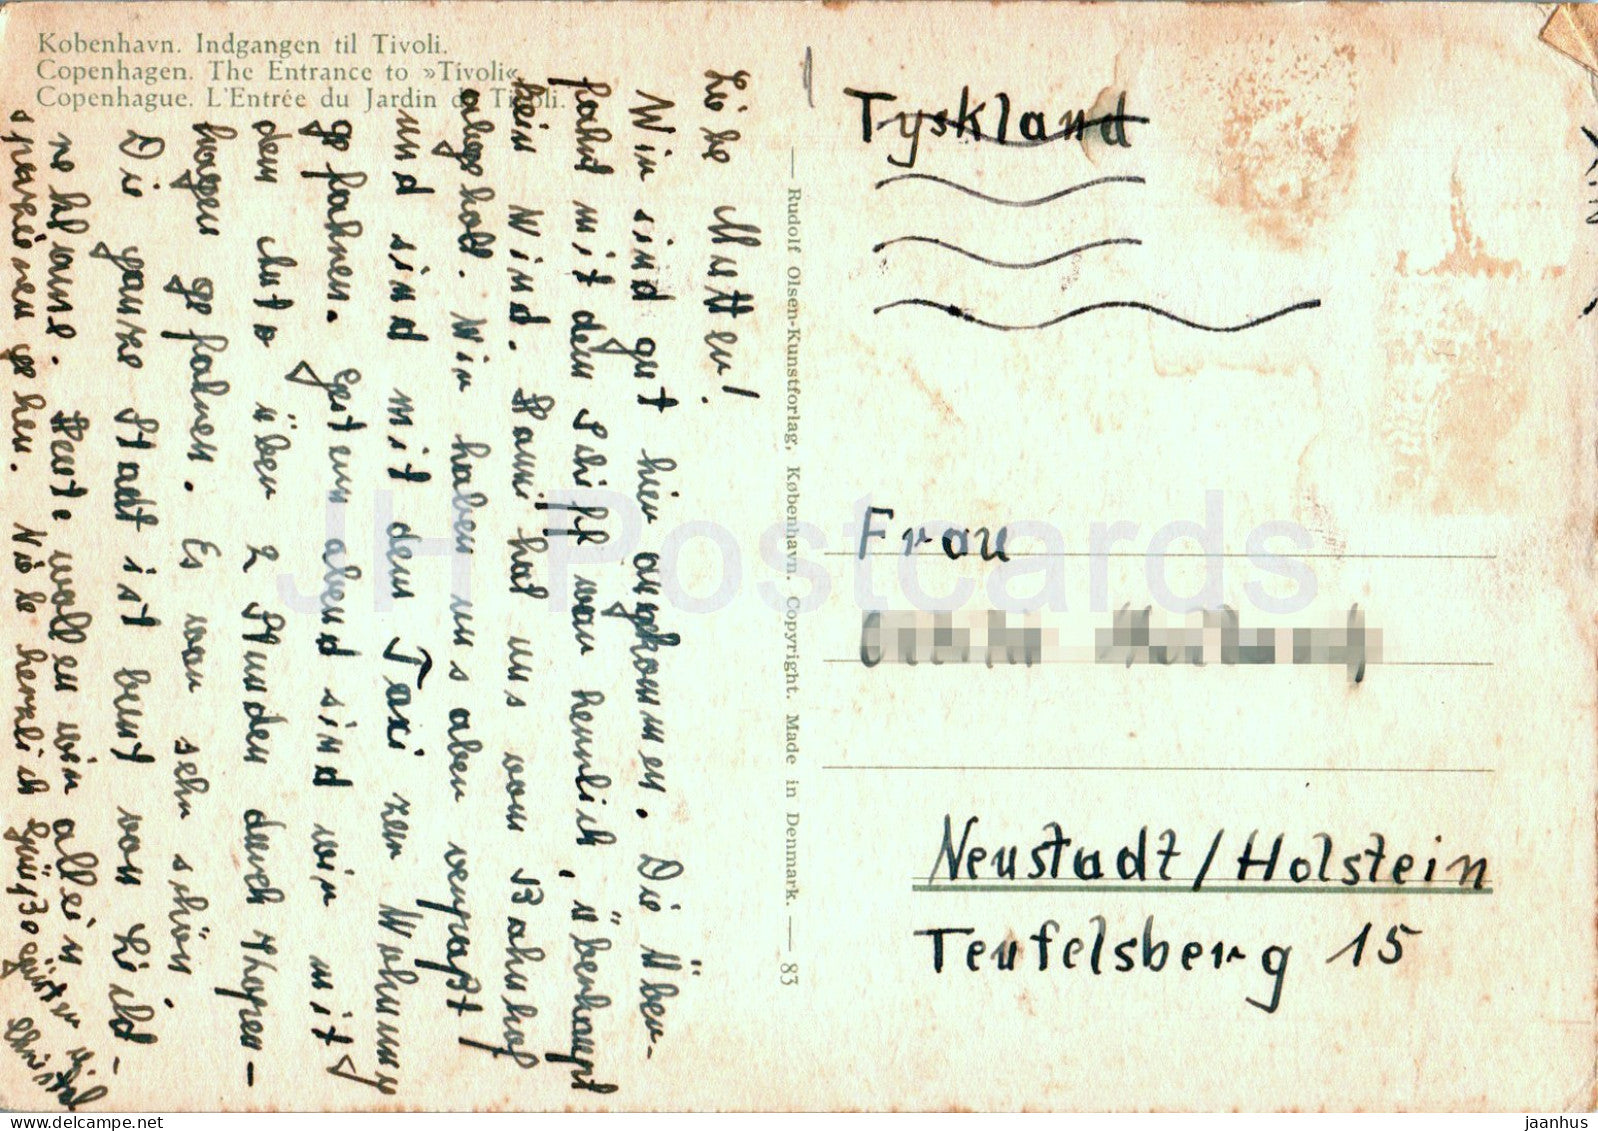 Kobenhavn. Indgangen til Tivoli.
Copenhagen. The Entrance to »Tivoli«
Copenhague. L'Entrée du Jardin de Tivoli.
Liebe Mutter!
Wir sind gut hier angekommen. Die Über-
fahrt mit dem Schiff war herrlich, überhaupt
kein Wind. Hanni hat uns vom Bahnhof
abgeholt. Wir haben uns aber verpaßt
und sind mit dem Taxi zur Wohnung
gefahren. Gestern abend sind wir mit
dem Auto über 2 Stunden durch Khopen-
hagen gefahren. Es war sehr schön.
Die ganze Stadt ist bunt von Licht-
reklame. Heute wollen wir allein
spazieren gehen. Viele herzlich Grüße
— Rudolf Olsen-Kunstforlag, København. Copyright. Made in Denmark. — 83
Tyskland
Frau
Neustadt/Holstein
Teufelsberg 15
JH Postcards
delcampe.net
jaanhus